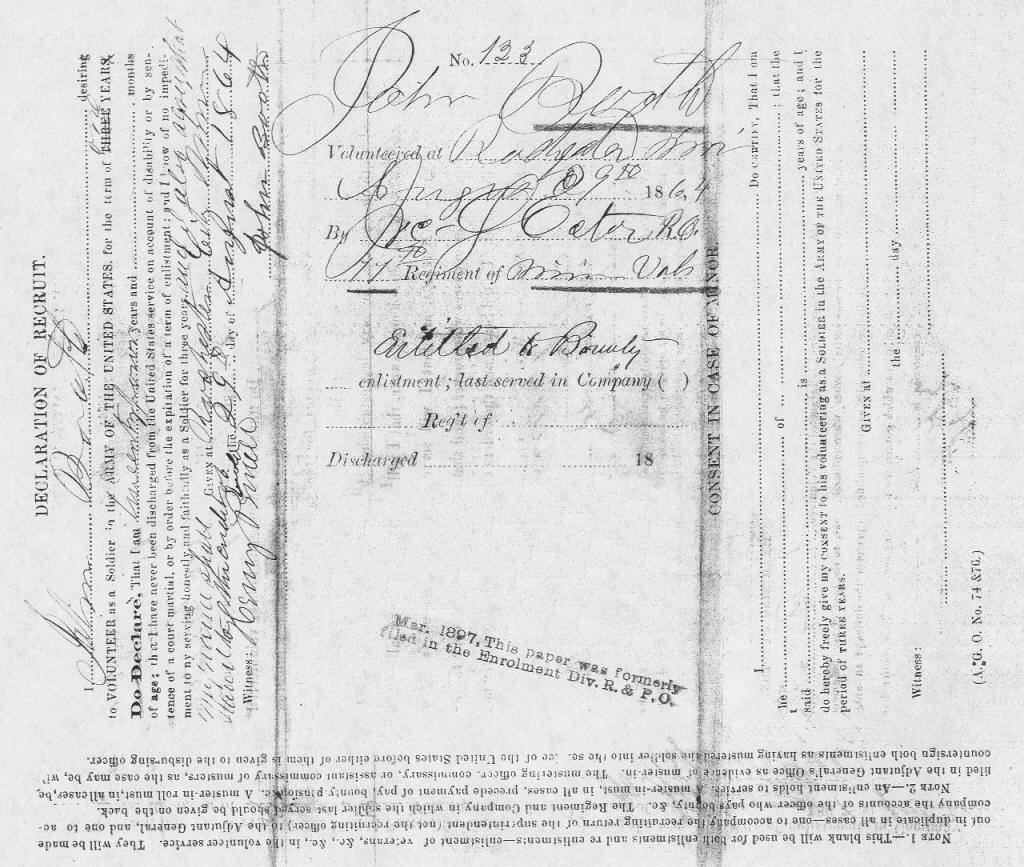 No. 133
John Booth
Volunteered at Rochester Min
August 29th 1864
By Eaton R.O.
Regiment of Min Vols
Entitled to Bounty
enlistment; last served in Company ( )
Reg't of
Discharged 18
Mar. 1897, This paper was formerly
filed in the Enrolment Div. R. & P. O.
DECLARATION OF RECRUIT.
I, John Booth desiring
to VOLUNTEER as a Soldier in the ARMY OF THE UNITED STATES, for the term of THREE YEARS,
Do Declare, That I am years and months
of age; that I have never been discharged from the United States service on account of disability or by sen-
tence of a court martial, or by order before the expiration of a term of enlistment; and I know of no impedi-
ment to my serving honestly and faithfully as a Soldier for three years. also agree that
my name shall
GIVEN at
the 29th day of August 1864
John Booth
Witness: Henry
CONSENT IN CASE OF MINOR.
I, Do CERTIFY, That I am
the of ; that the
said is years of age; and I
do hereby freely give my CONSENT to his volunteering as a SOLDIER in the ARMY OF THE UNITED STATES for the
period of THREE YEARS.
GIVEN at
the day
Witness:
(A. G. O. No. 74 & 76.)
NOTE 1.—This blank will be used for both enlistments and re enlistments—enlistment of veterans, &c., &c., in the volunteer service. They will be made
out in duplicate in all cases—one to accompany the recruiting return of the superintendent (not the recruiting officer) to the Adjutant General, and one to ac-
company the accounts of the officer who pays bounty, &c. The Regiment and Company in which the soldier last served should be given on the back.
NOTE 2.—An enlistment holds to service. A muster-in must, in all cases, precede payment of pay, bounty, A muster-in roll must, in all cases, be
filed in the Adjutant General's office as evidence of muster-in. The mustering officer, commissary, or assistant commissary of musters, as the case may be,
countersign both enlistments as having mustered the soldier into the of the United States before either of them is given to the disbursing officer.